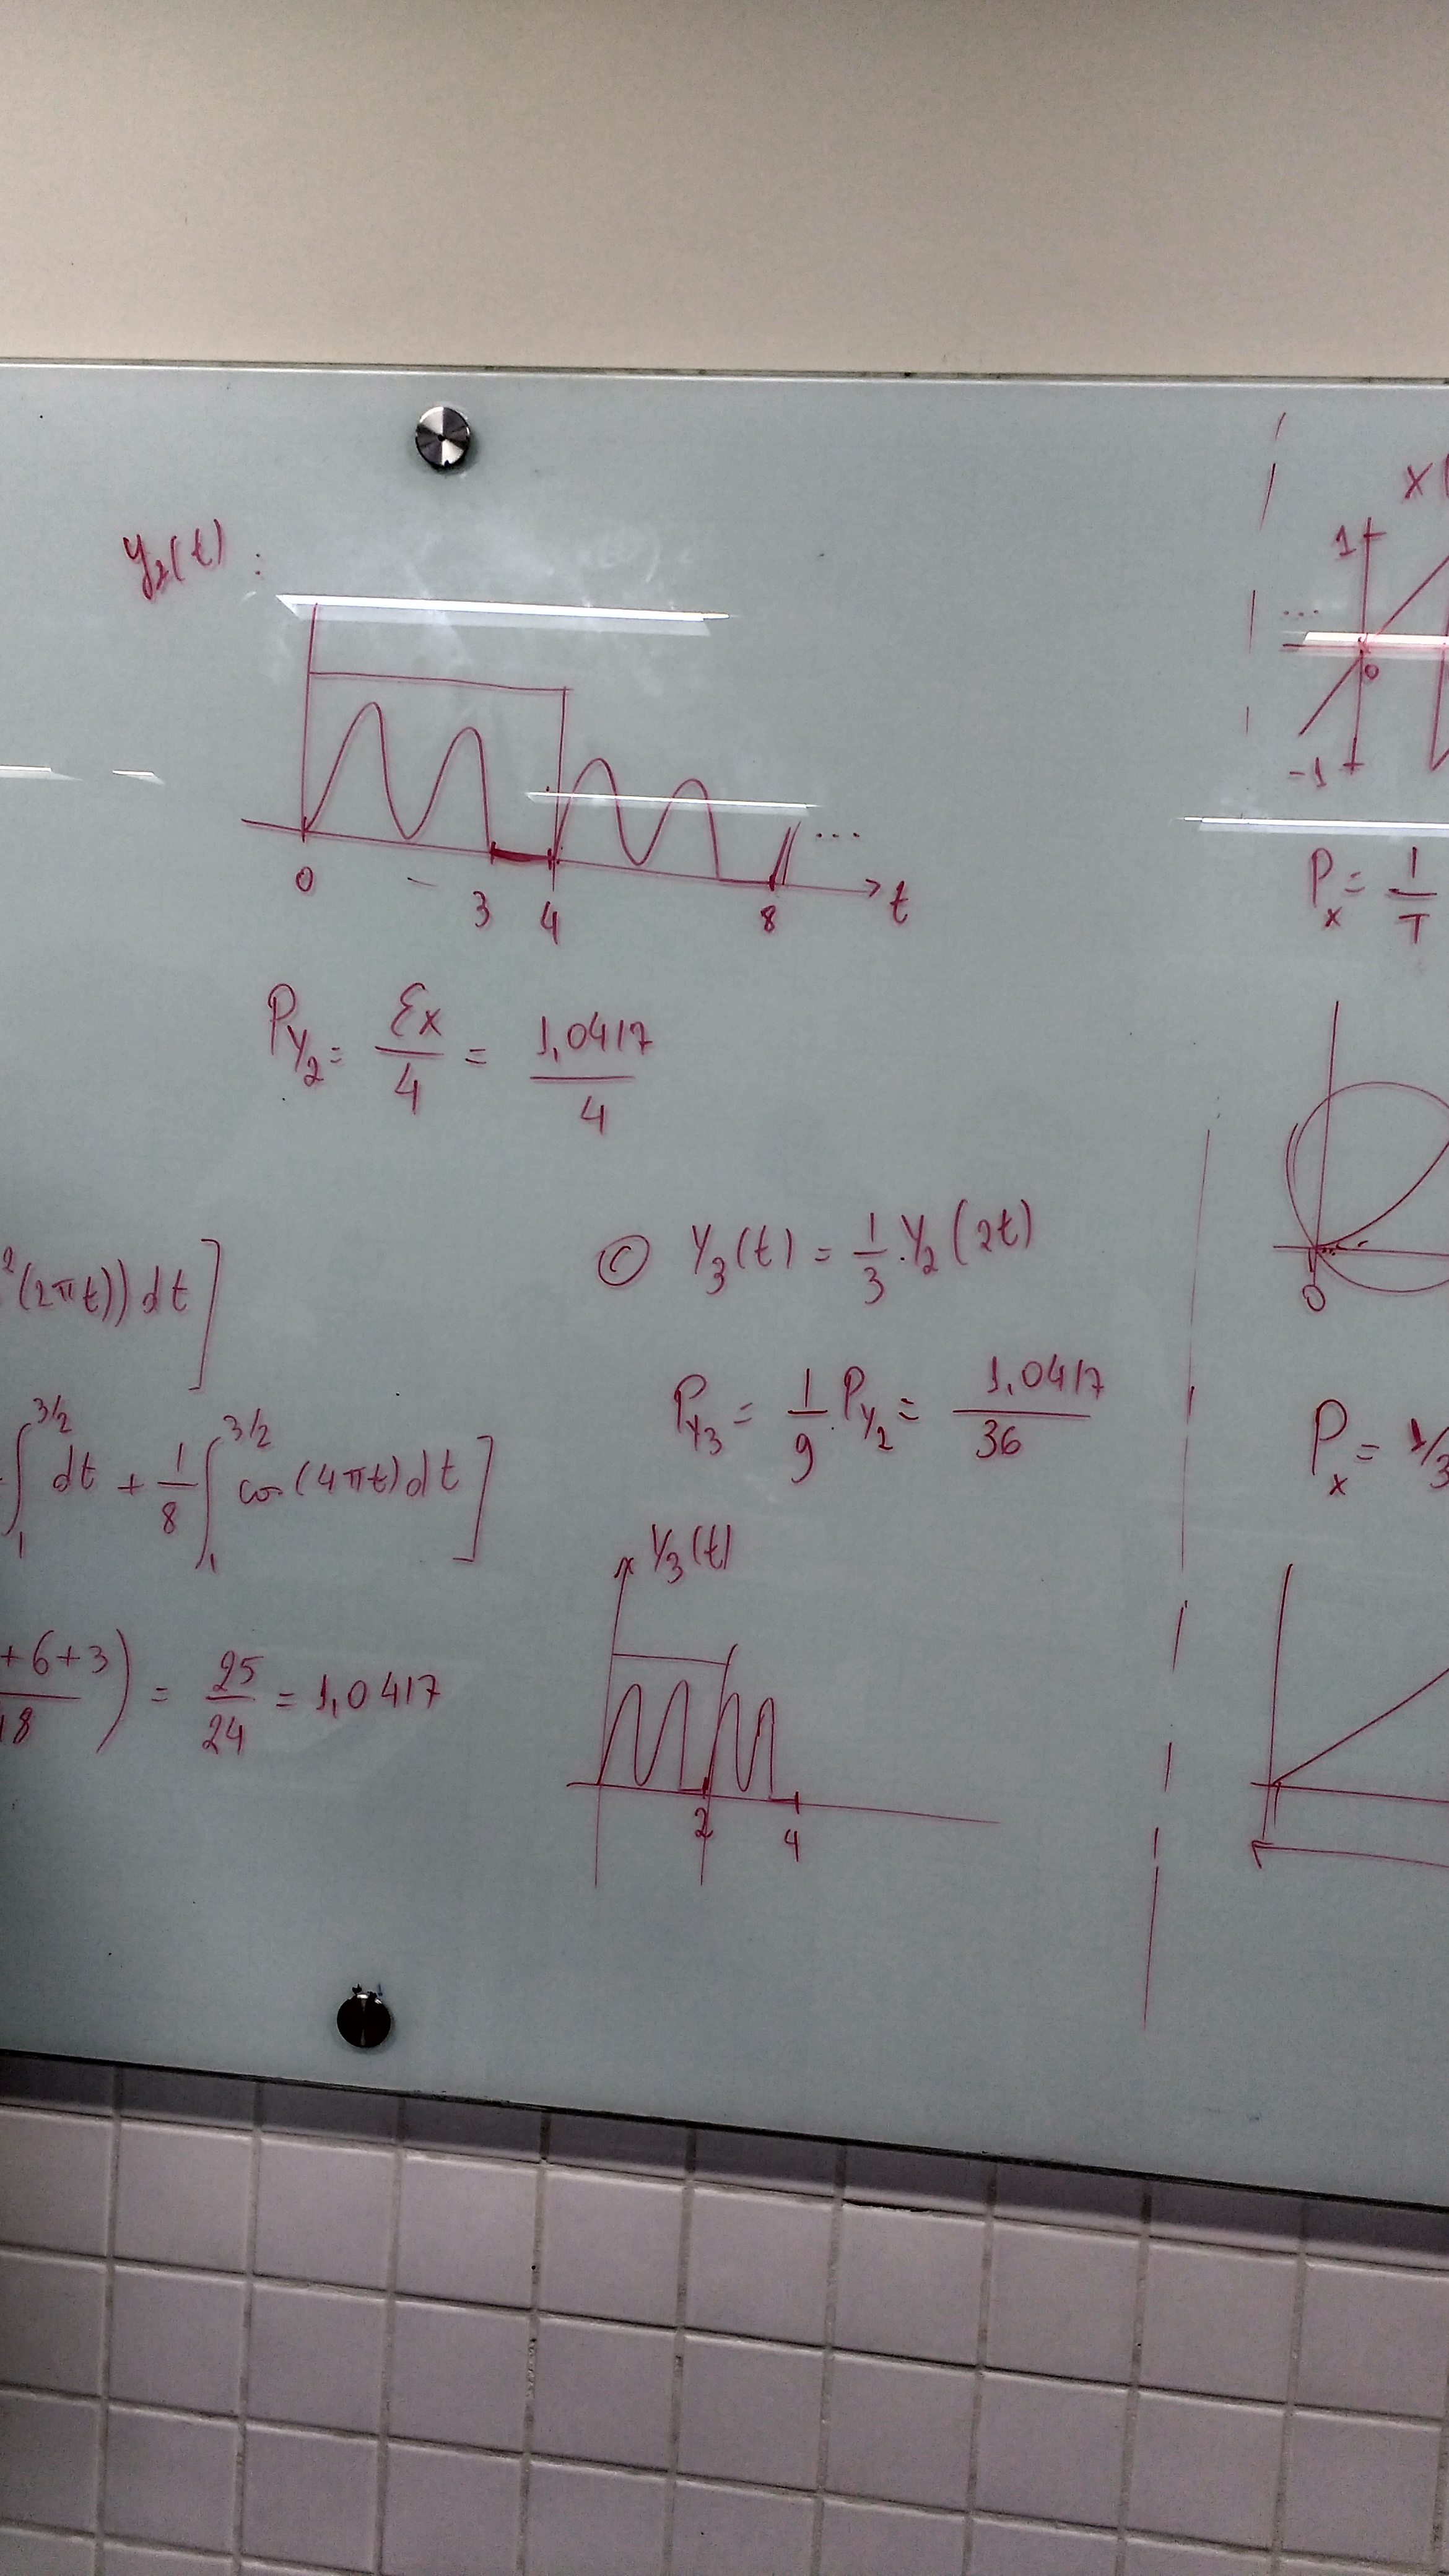 y₂(t) :
0 3 4 8 t
...
P_y₂ = Ɛx/4 = 1,0417/4
²(2πt))dt]
∫₁^(3/2) dt + 1/8 ∫₁^(3/2) cos(4πt)dt]
+6+3/18) = 25/24 = 1,0417
© y₃(t) = 1/3 . y₂(2t)
P_y₃ = 1/9 . P_y₂ = 1,0417/36
y₃(t)
2 4
x(
1
...
0
-1
P_x = 1/T
0
P_x = 1/3